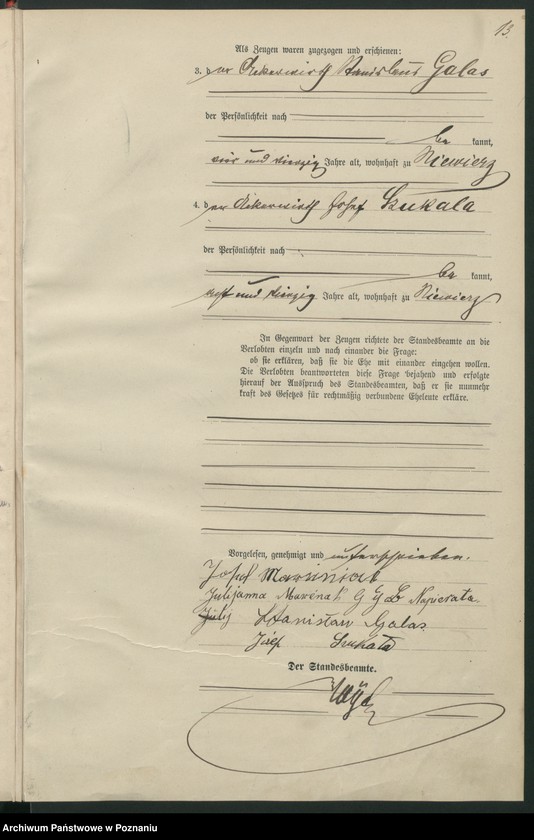 13.
Als Zeugen waren zugezogen und erschienen:
3. der Ackerwirth Stanislaus Galas
der Persönlichkeit nach
be kannt,
vier und vierzig Jahre alt, wohnhaft zu Niewierz
4. der Ackerwirth Josef Szukala
der Persönlichkeit nach
be kannt,
acht und vierzig Jahre alt, wohnhaft zu Niewierz
In Gegenwart der Zeugen richtete der Standesbeamte an die
Verlobten einzeln und nach einander die Frage:
ob sie erklären, daß sie die Ehe mit einander eingehen wollen.
Die Verlobten beantworteten diese Frage bejahend und erfolgte
hierauf der Ausspruch des Standesbeamten, daß er sie nunmehr
kraft des Gesetzes für rechtmäßig verbundene Eheleute erkläre.
Vorgelesen, genehmigt und unterschrieben.
Josef Marciniak
Julijanna Napierata
Stanisław Galas
Józef Szukała
Der Standesbeamte.
Archiwum Państwowe w Poznaniu